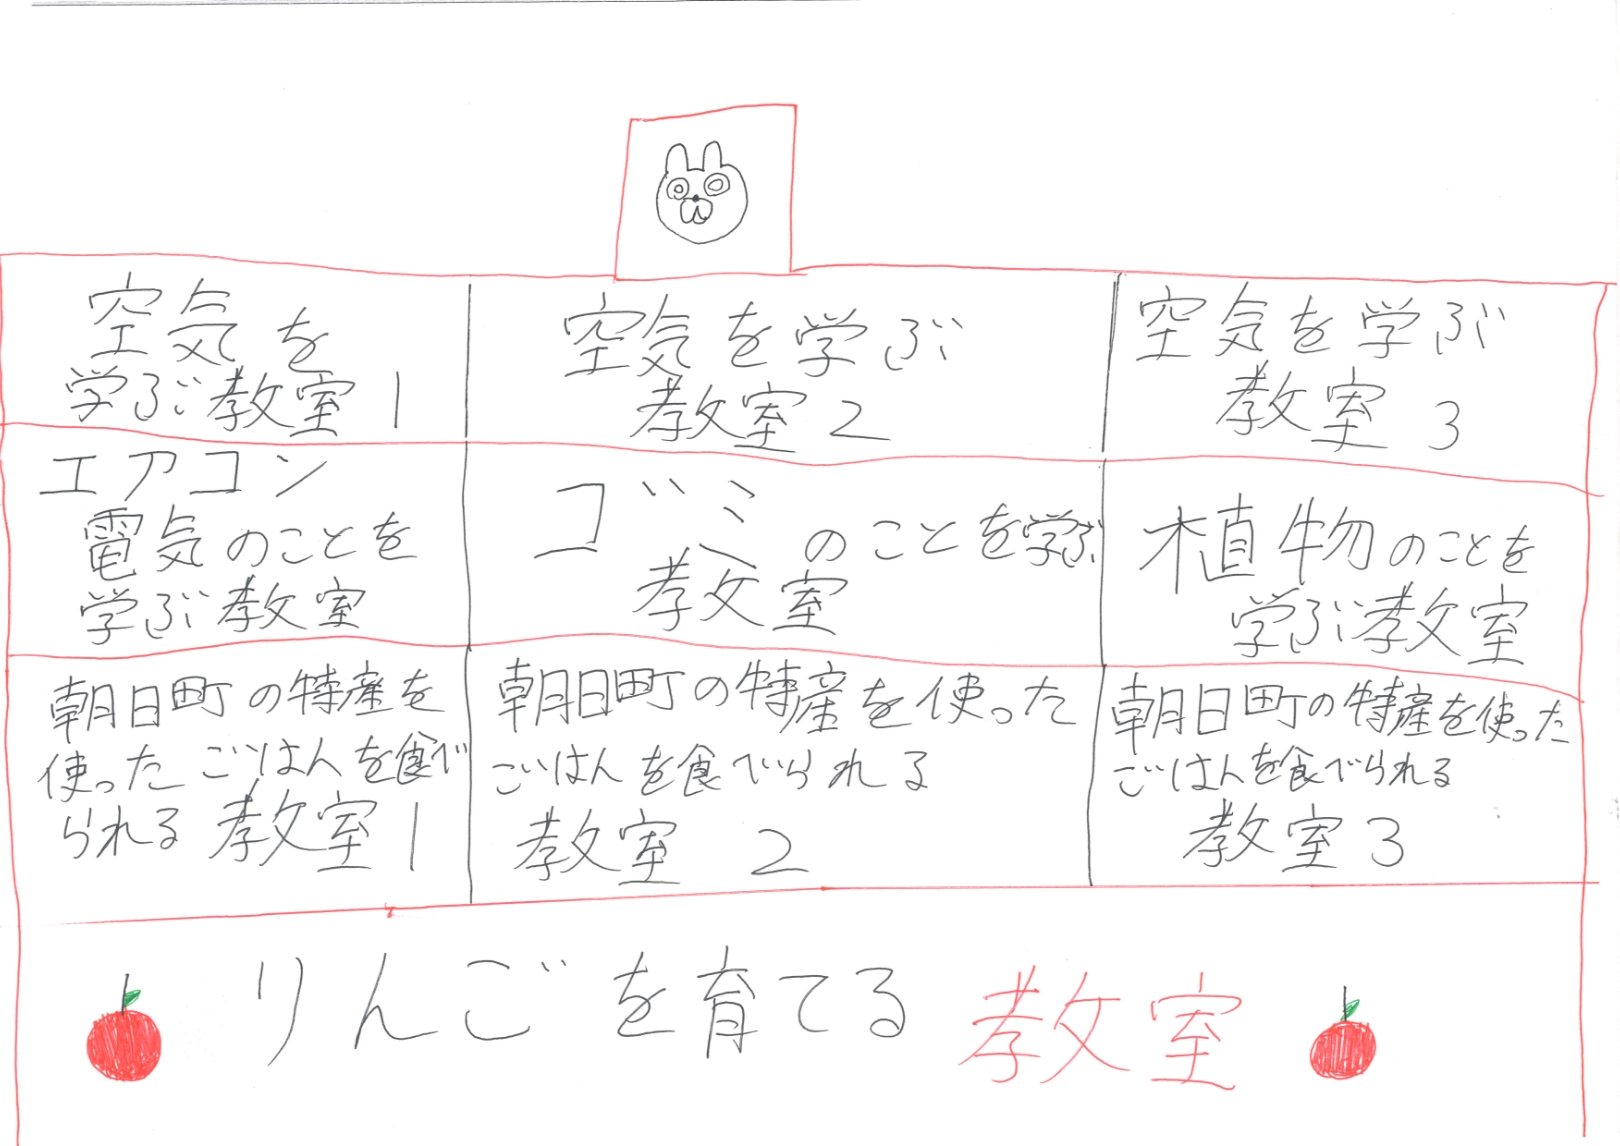 空気を
学ぶ教室1
空気を学ぶ
教室2
空気を学ぶ
教室3
エアコン
電気のことを
学ぶ教室
ゴミのことを学ぶ
教室
植物のことを
学ぶ教室
朝日町の特産を
使ったごはんを食べ
られる教室1
朝日町の特産を使った
ごはんを食べられる
教室 2
朝日町の特産を使った
ごはんを食べられる
教室3
りんごを育てる教室